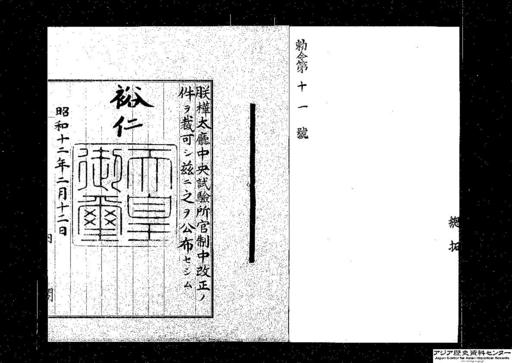 勅令第十一號
拓
朕樺太廳中央試驗所官制中改正ノ
件ヲ裁可シ茲ニ之ヲ公布セシム
裕仁
天皇
御璽
昭和十二年二月十二日
内
アジア歴史資料センター
Japan Center for Asian Historical Records